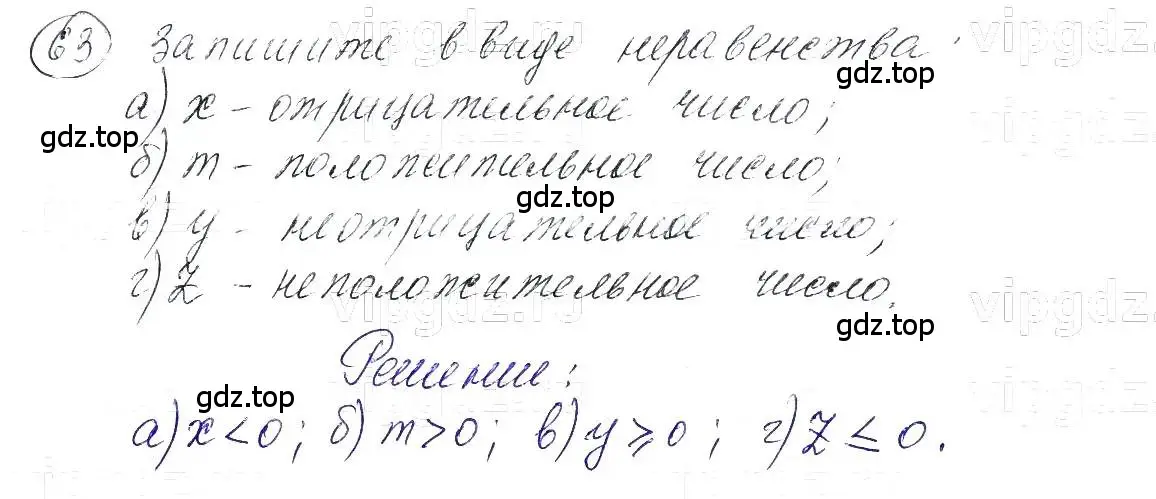 63 Запишите в виде неравенства:
а) x - отрицательное число;
б) m - положительное число;
в) y - неотрицательное число;
г) z - неположительное число.
Решение:
а) x < 0; б) m > 0; в) y ⩾ 0; г) z ≤ 0.
gdz.top
gdz.top
gdz.top
gdz.top
gdz.top
vipgdz.ru
vipgdz.
vipgdz.ru
vipgdz.